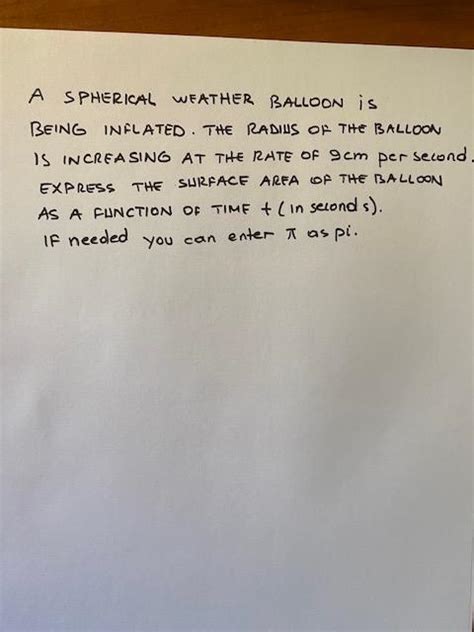 A SPHERICAL WEATHER BALLOON is
BEING INFLATED. THE RADIUS OF THE BALLOON
IS INCREASING AT THE RATE OF 9cm per second.
EXPRESS THE SURFACE AREA OF THE BALLOON
AS A FUNCTION OF TIME t (in seconds).
IF needed you can enter π as pi.